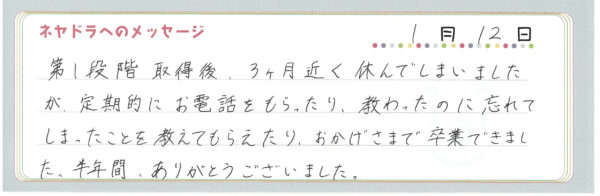 ネヤドラへのメッセージ
1月12日
第1段階取得後、3ヶ月近く休んでしまいました
が、定期的にお電話をもらったり、教わったのに忘れて
しまったことを教えてもらえたり、おかげさまで卒業できまし
た。半年間、ありがとうございました。